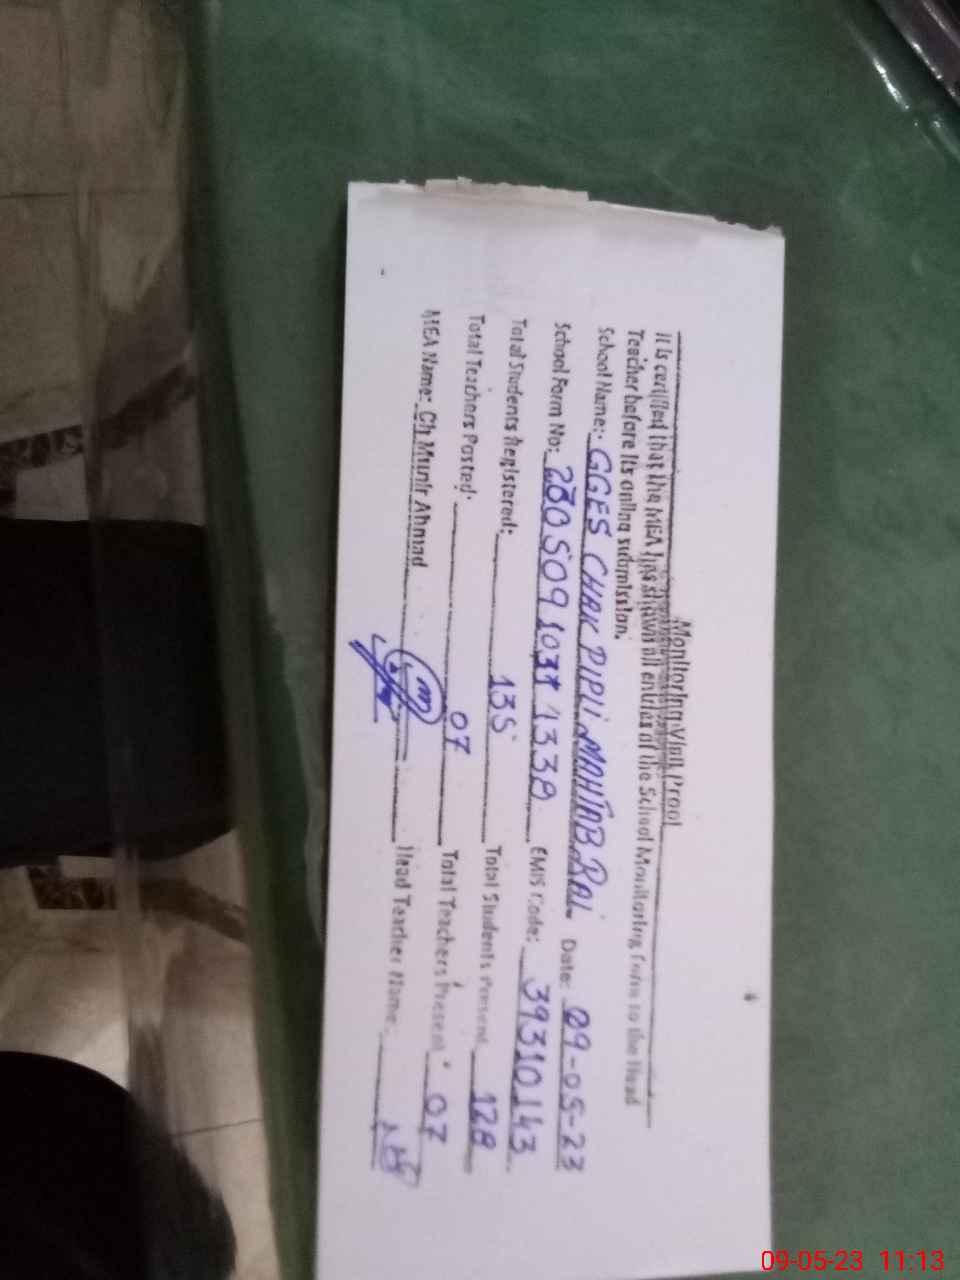 Monitoring Visit Proof
It is certified that the MEA has shown all entries of the School Monitoring Form to the Head
Teacher before its online submission.
School Name:- GGES CHAK PIPLI MAHTAB RAI Date: 09-05-23
School Form No: EMIS Code: 39310143
Total Students Registered: 135 Total Students Present 128
Total Teachers Posted: 07 Total Teachers Present 07
MEA Name: Ch Munir Ahmad Head Teacher Name:
09-05-23 11:13